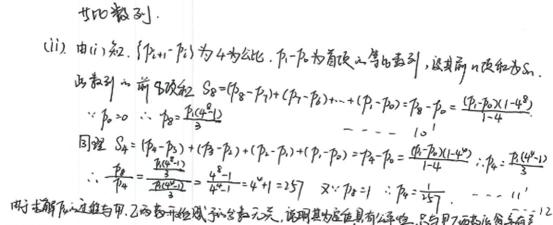 其比数列.
(ii) 由(i)知, {P_{i+1}-P_i}为4为公比, P_1-P_0为首项的等比数列, 设其前n项和为S_n.
此数列的前8项和 S_8=(P_8-P_7)+(P_7-P_6)+…+(P_1-P_0)=P_8-P_0=\frac{(P_1-P_0)(1-4^8)}{1-4}
∵ P_0=0 ∴ P_8=\frac{P_1(4^8-1)}{3} ---- 10'
同理 S_4=(P_4-P_3)+(P_3-P_2)+(P_2-P_1)+(P_1-P_0)=P_4-P_0=\frac{(P_1-P_0)(1-4^4)}{1-4} ∴P_4=\frac{P_1(4^4-1)}{3}
∴ \frac{P_8}{P_4}=\frac{\frac{P_1(4^8-1)}{3}}{\frac{P_1(4^4-1)}{3}}=\frac{4^8-1}{4^4-1}=4^4+1=257 又∵P_8=1 ∴P_4=\frac{1}{257}. ---- 11'
用于求解P_4的过程与甲、乙两药开始赋予的分数无关, 12